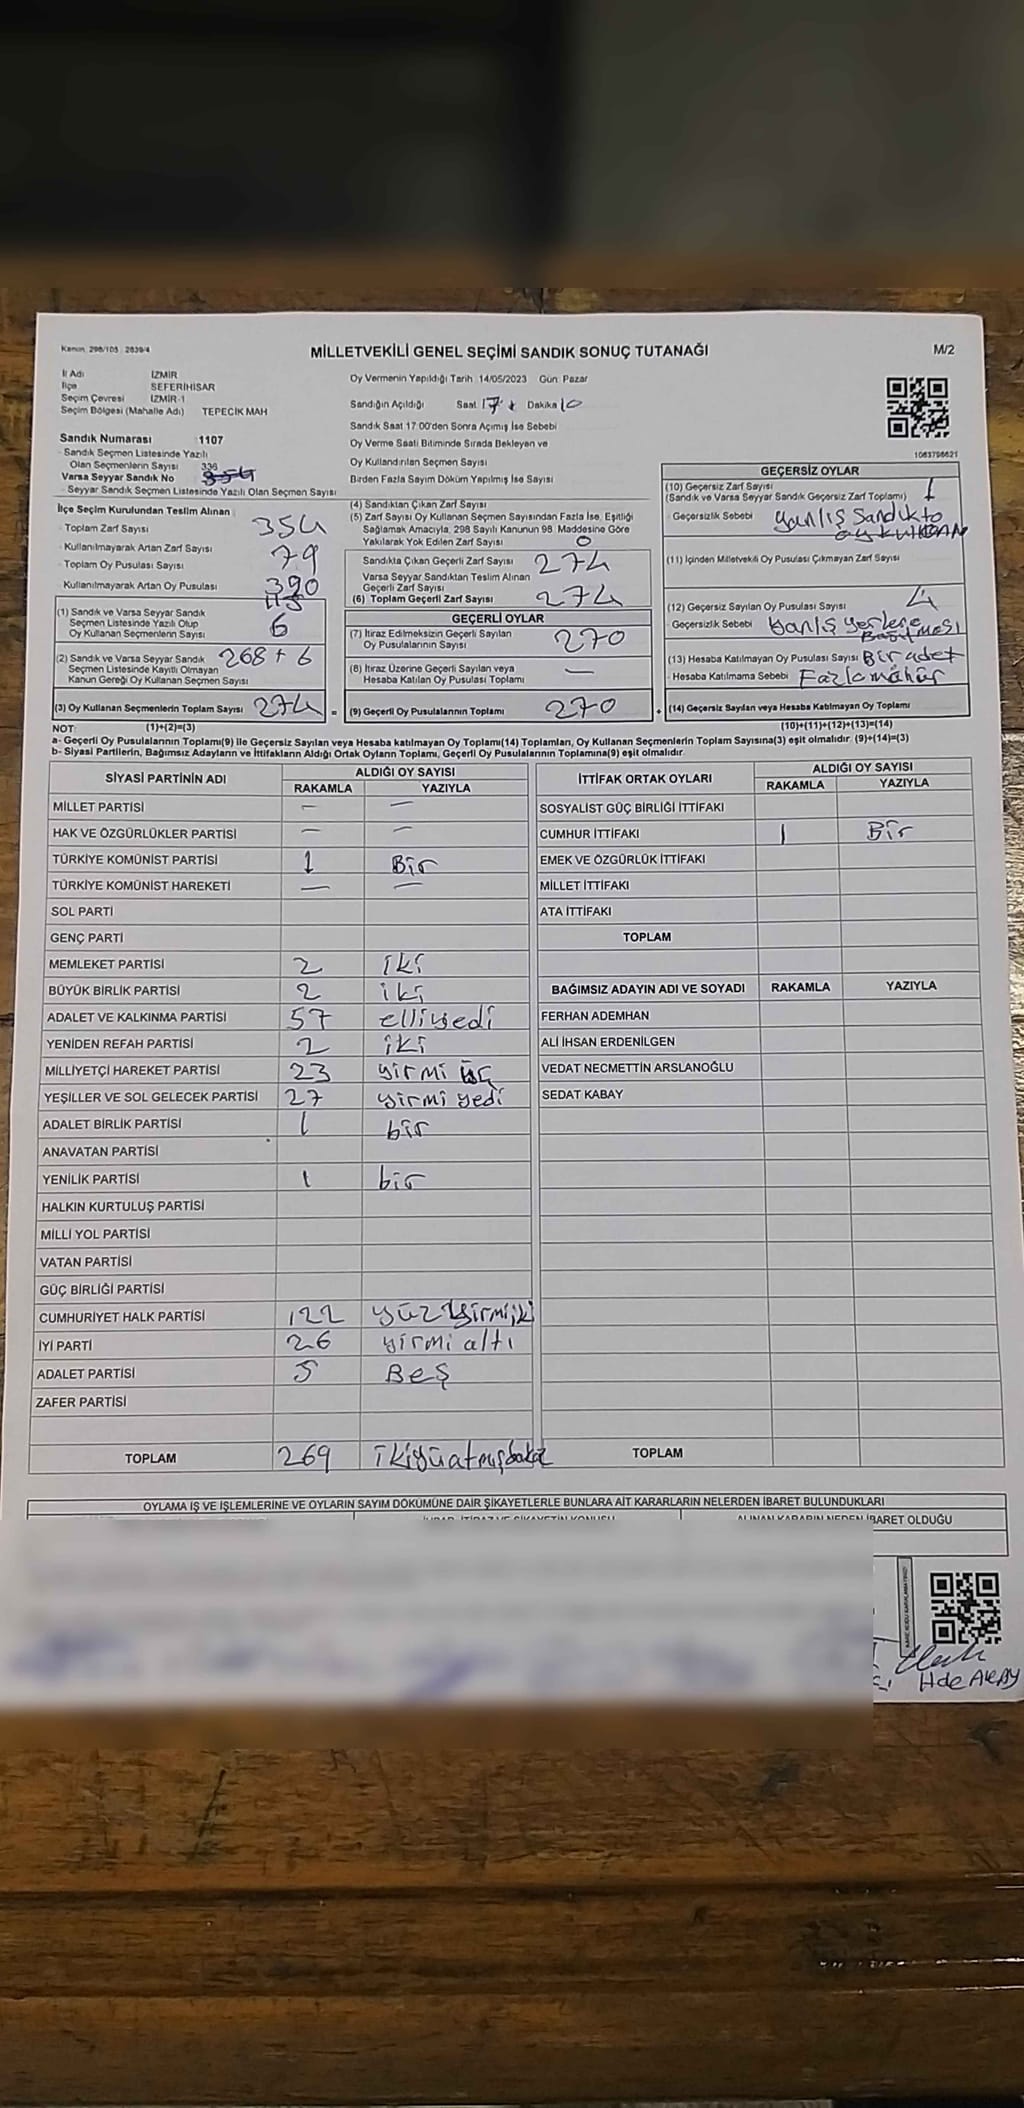 Kanun 298/105 2839/4
MİLLETVEKİLİ GENEL SEÇİMİ SANDIK SONUÇ TUTANAĞI
M/2
İl Adı İZMİR
İlçe SEFERİHİSAR
Seçim Çevresi İZMİR-1
Seçim Bölgesi (Mahalle Adı) TEPECİK MAH
Sandık Numarası 1107
- Sandık Seçmen Listesinde Yazılı
Olan Seçmenlerin Sayısı 336
Varsa Seyyar Sandık No 354
- Seyyar Sandık Seçmen Listesinde Yazılı Olan Seçmen Sayısı
Oy Vermenin Yapıldığı Tarih 14/05/2023 Gün: Pazar
Sandığın Açıldığı Saat 17 Dakika 10
Sandık Saat 17:00'den Sonra Açımış İse Sebebi
Oy Verme Saati Bitiminde Sırada Bekleyen ve
Oy Kullandırılan Seçmen Sayısı
Birden Fazla Sayım Döküm Yapılmış İse Sayısı
1063798621
İlçe Seçim Kurulundan Teslim Alınan
- Toplam Zarf Sayısı 354
- Kullanılmayarak Artan Zarf Sayısı 79
- Toplam Oy Pusulası Sayısı 390
- Kullanılmayarak Artan Oy Pusulası 115
(1) Sandık ve Varsa Seyyar Sandık
Seçmen Listesinde Yazılı Olup
Oy Kullanan Seçmenlerin Sayısı 6
(2) Sandık ve Varsa Seyyar Sandık 268+6
Seçmen Listesinde Kayıtlı Olmayan
Kanun Gereği Oy Kullanan Seçmen Sayısı
(3) Oy Kullanan Seçmenlerin Toplam Sayısı 274 =
(4) Sandıktan Çıkan Zarf Sayısı
(5) Zarf Sayısı Oy Kullanan Seçmen Sayısından Fazla İse, Eşitliği
Sağlamak Amacıyla, 298 Sayılı Kanunun 98. Maddesine Göre
Yakılarak Yok Edilen Zarf Sayısı 0
Sandıkta Çıkan Geçerli Zarf Sayısı 274
Varsa Seyyar Sandıktan Teslim Alınan
Geçerli Zarf Sayısı
(6) Toplam Geçerli Zarf Sayısı 274
GEÇERLİ OYLAR
(7) İtiraz Edilmeksizin Geçerli Sayılan
Oy Pusulalarının Sayısı 270
(8) İtiraz Üzerine Geçerli Sayılan veya
Hesaba Katılan Oy Pusulası Toplamı —
(9) Geçerli Oy Pusulalarının Toplamı 270 +
GEÇERSİZ OYLAR
(10) Geçersiz Zarf Sayısı
(Sandık ve Varsa Seyyar Sandık Geçersiz Zarf Toplamı) 1
- Geçersizlik Sebebi Yanlış Sandıkta
oy kullanan
(11) İçinden Milletvekili Oy Pusulası Çıkmayan Zarf Sayısı
(12) Geçersiz Sayılan Oy Pusulası Sayısı 4
- Geçersizlik Sebebi Yanlış yerlere
Basılması
(13) Hesaba Katılmayan Oy Pusulası Sayısı Bir adet
- Hesaba Katılmama Sebebi Fazla mühür
(14) Geçersiz Sayılan veya Hesaba Katılmayan Oy Toplamı
NOT: (1)+(2)=(3) (10)+(11)+(12)+(13)=(14)
a- Geçerli Oy Pusulalarının Toplamı(9) ile Geçersiz Sayılan veya Hesaba katılmayan Oy Toplamı(14) Toplamları, Oy Kullanan Seçmenlerin Toplam Sayısına(3) eşit olmalıdır (9)+(14)=(3)
b- Siyasi Partilerin, Bağımsız Adayların ve İttifakların Aldığı Ortak Oyların Toplamı, Geçerli Oy Pusulalarının Toplamına(9) eşit olmalıdır
SİYASİ PARTİNİN ADI ALDIĞI OY SAYISI
RAKAMLA YAZIYLA
MİLLET PARTİSİ — —
HAK VE ÖZGÜRLÜKLER PARTİSİ — —
TÜRKİYE KOMÜNİST PARTİSİ 1 Bir
TÜRKİYE KOMÜNİST HAREKETİ — —
SOL PARTİ
GENÇ PARTİ
MEMLEKET PARTİSİ 2 iki
BÜYÜK BİRLİK PARTİSİ 2 iki
ADALET VE KALKINMA PARTİSİ 57 elliyedi
YENİDEN REFAH PARTİSİ 2 iki
MİLLİYETÇİ HAREKET PARTİSİ 23 yirmi üç
YEŞİLLER VE SOL GELECEK PARTİSİ 27 yirmi yedi
ADALET BİRLİK PARTİSİ 1 bir
ANAVATAN PARTİSİ
YENİLİK PARTİSİ 1 bir
HALKIN KURTULUŞ PARTİSİ
MİLLİ YOL PARTİSİ
VATAN PARTİSİ
GÜÇ BİRLİĞİ PARTİSİ
CUMHURİYET HALK PARTİSİ 122 yüzyirmiiki
İYİ PARTİ 26 yirmi altı
ADALET PARTİSİ 5 Beş
ZAFER PARTİSİ
TOPLAM 269
İTTİFAK ORTAK OYLARI ALDIĞI OY SAYISI
RAKAMLA YAZIYLA
SOSYALİST GÜÇ BİRLİĞİ İTTİFAKI
CUMHUR İTTİFAKI 1 Bir
EMEK VE ÖZGÜRLÜK İTTİFAKI
MİLLET İTTİFAKI
ATA İTTİFAKI
TOPLAM
BAĞIMSIZ ADAYIN ADI VE SOYADI RAKAMLA YAZIYLA
FERHAN ADEMHAN
ALİ İHSAN ERDENİLGEN
VEDAT NECMETTİN ARSLANOĞLU
SEDAT KABAY
TOPLAM
OYLAMA İŞ VE İŞLEMLERİNE VE OYLARIN SAYIM DÖKÜMÜNE DAİR ŞİKAYETLERLE BUNLARA AİT KARARLARIN NELERDEN İBARET BULUNDUKLARI
ALINAN KARARIN NEDEN İBARET OLDUĞU